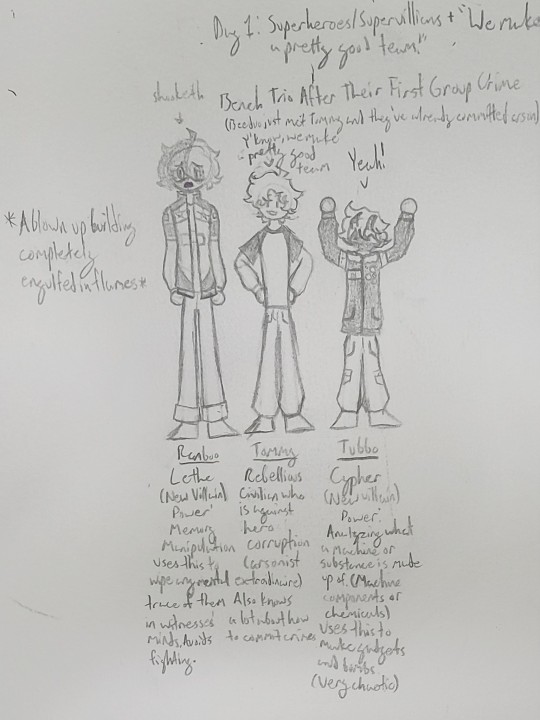 Day 1: Superheroes/Supervillians + "We make
a pretty good team!"
Bench Trio After Their First Group Crime
(Beeduo just met Tommy and they've already committed arson)
shooketh
Y'know, we make
pretty good
team
Yeah!
*A blown up building
completely
engulfed in flames*
Ranboo
Lethe
(New Villain)
Power:
Memory
Manipulation
uses this to
wipe any mental
trace of them
in witnesses
minds. Avoids
fighting.
Tommy
Rebellious
Civilian who
is against
hero
corruption
(arsonist
extrodinaire)
Also knows
a lot about how
to commit crimes
Tubbo
Cypher
(New Villain)
Power:
Analyzing what
a machine or
substance is made
up of. (Machine
components or
chemicals)
Uses this to
make gadgets
and bombs
(Very chaotic)